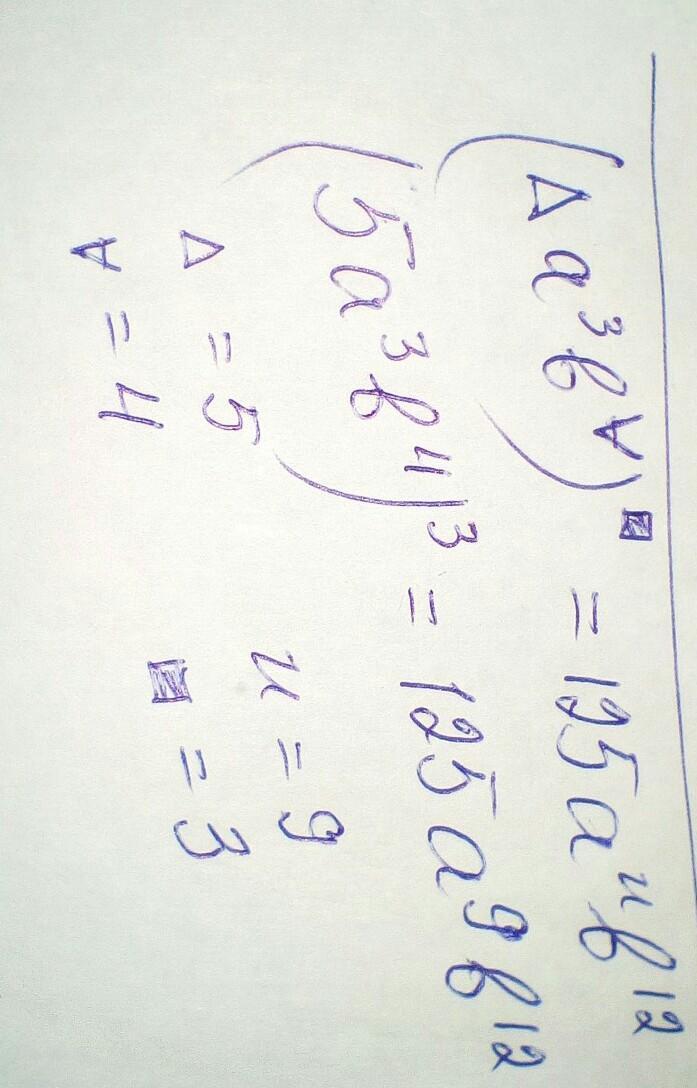 (△a³b^∀)^■ = 125a^u b¹²
(5a³b⁴)³ = 125a⁹b¹²
△ = 5 u = 9
∀ = 4 ■ = 3